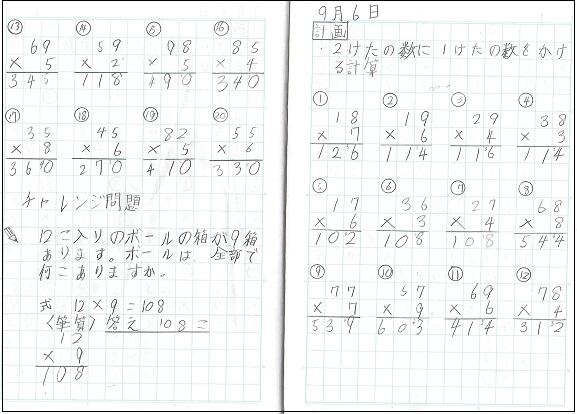 9月6日
計画
2けたの数に1けたの数をかけ
る計算
① ② ③ ④
18 19 29 38
×7 ×6 ×4 ×3
126 114 116 114
⑤ ⑥ ⑦ ⑧
17 36 27 68
×6 ×3 ×4 ×8
102 108 108 544
⑨ ⑩ ⑪ ⑫
77 67 69 78
×7 ×9 ×6 ×4
539 603 414 312
⑬ ⑭ ⑮ ⑯
69 59 98 85
×5 ×2 ×5 ×4
345 118 490 340
⑰ ⑱ ⑲ ⑳
35 45 82 55
×8 ×6 ×5 ×6
360 270 410 330
チャレンジ問題
12こ入りのボールの箱が9箱
あります。ボールは、全部で
何こありますか。
式 12×9=108
〈筆算〉答え 108こ
12
×9
108